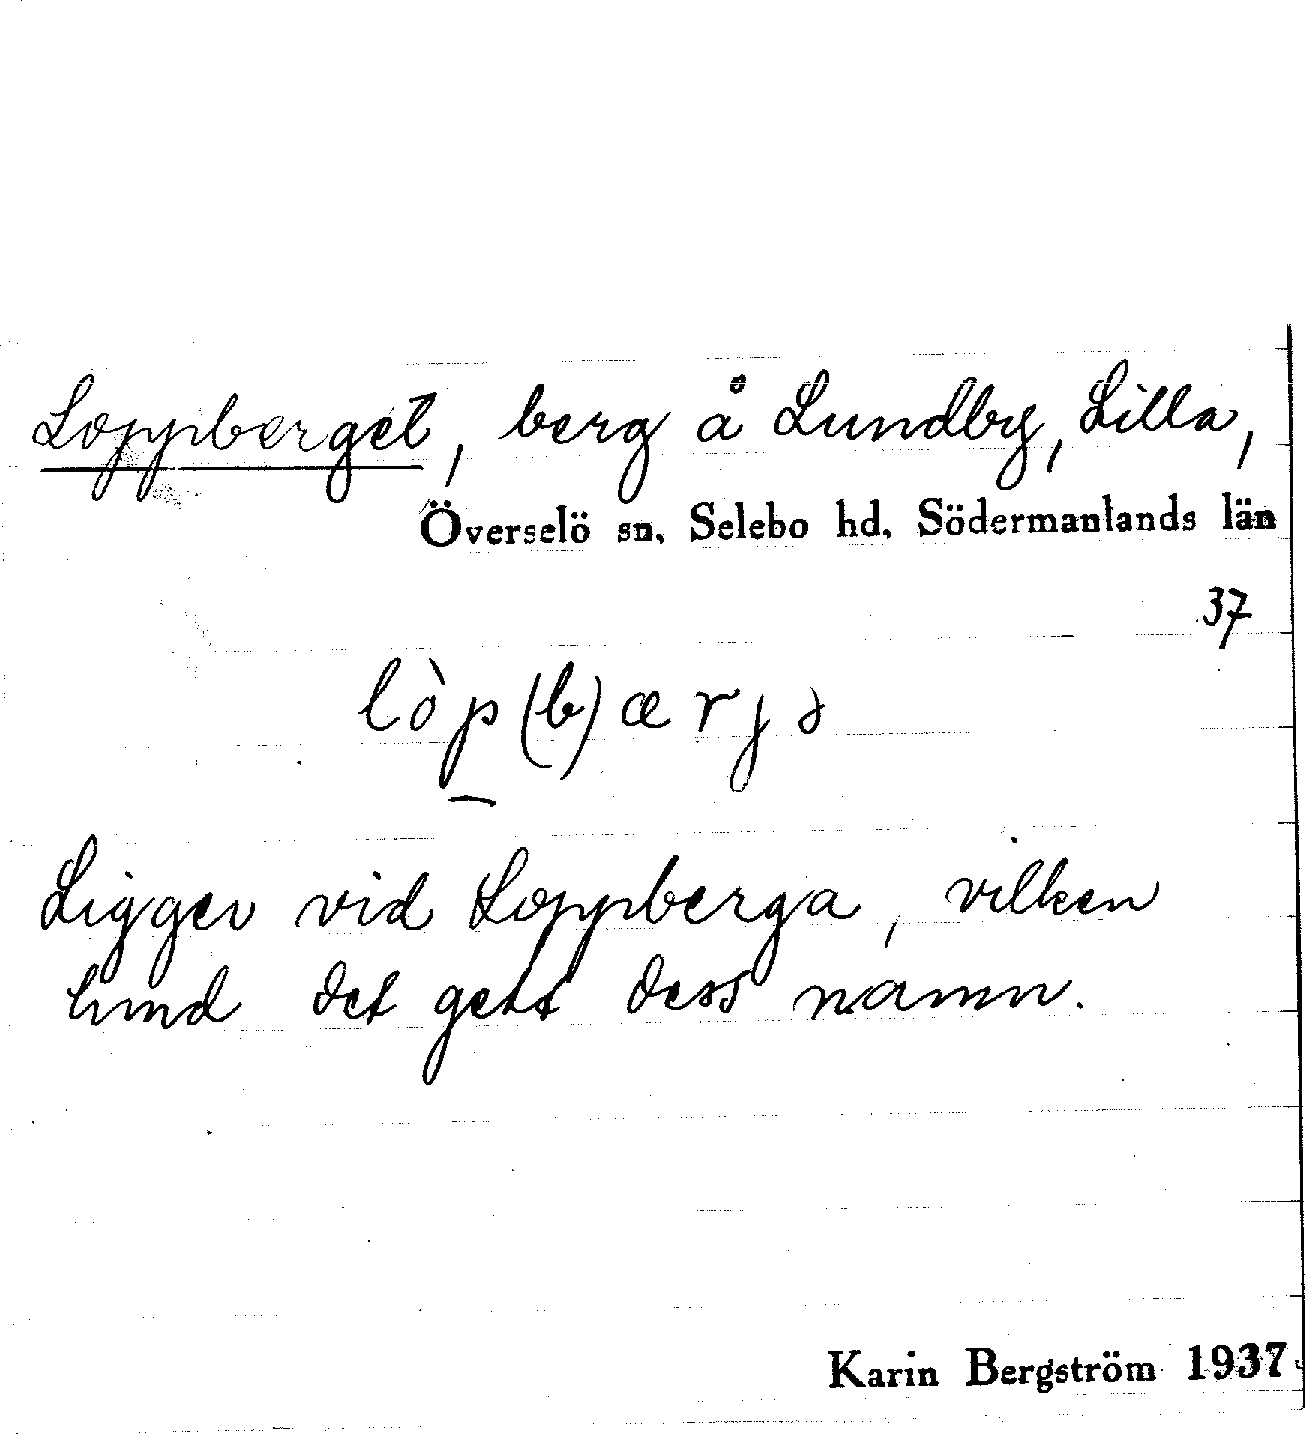 Loppberget, berg å Lundby, Lilla,
Överselö sn, Selebo hd, Södermanlands län
37
lòp(b)ærjə
Ligger vid Loppberga, vilken
lund det gett dess namn.
Karin Bergström 1937